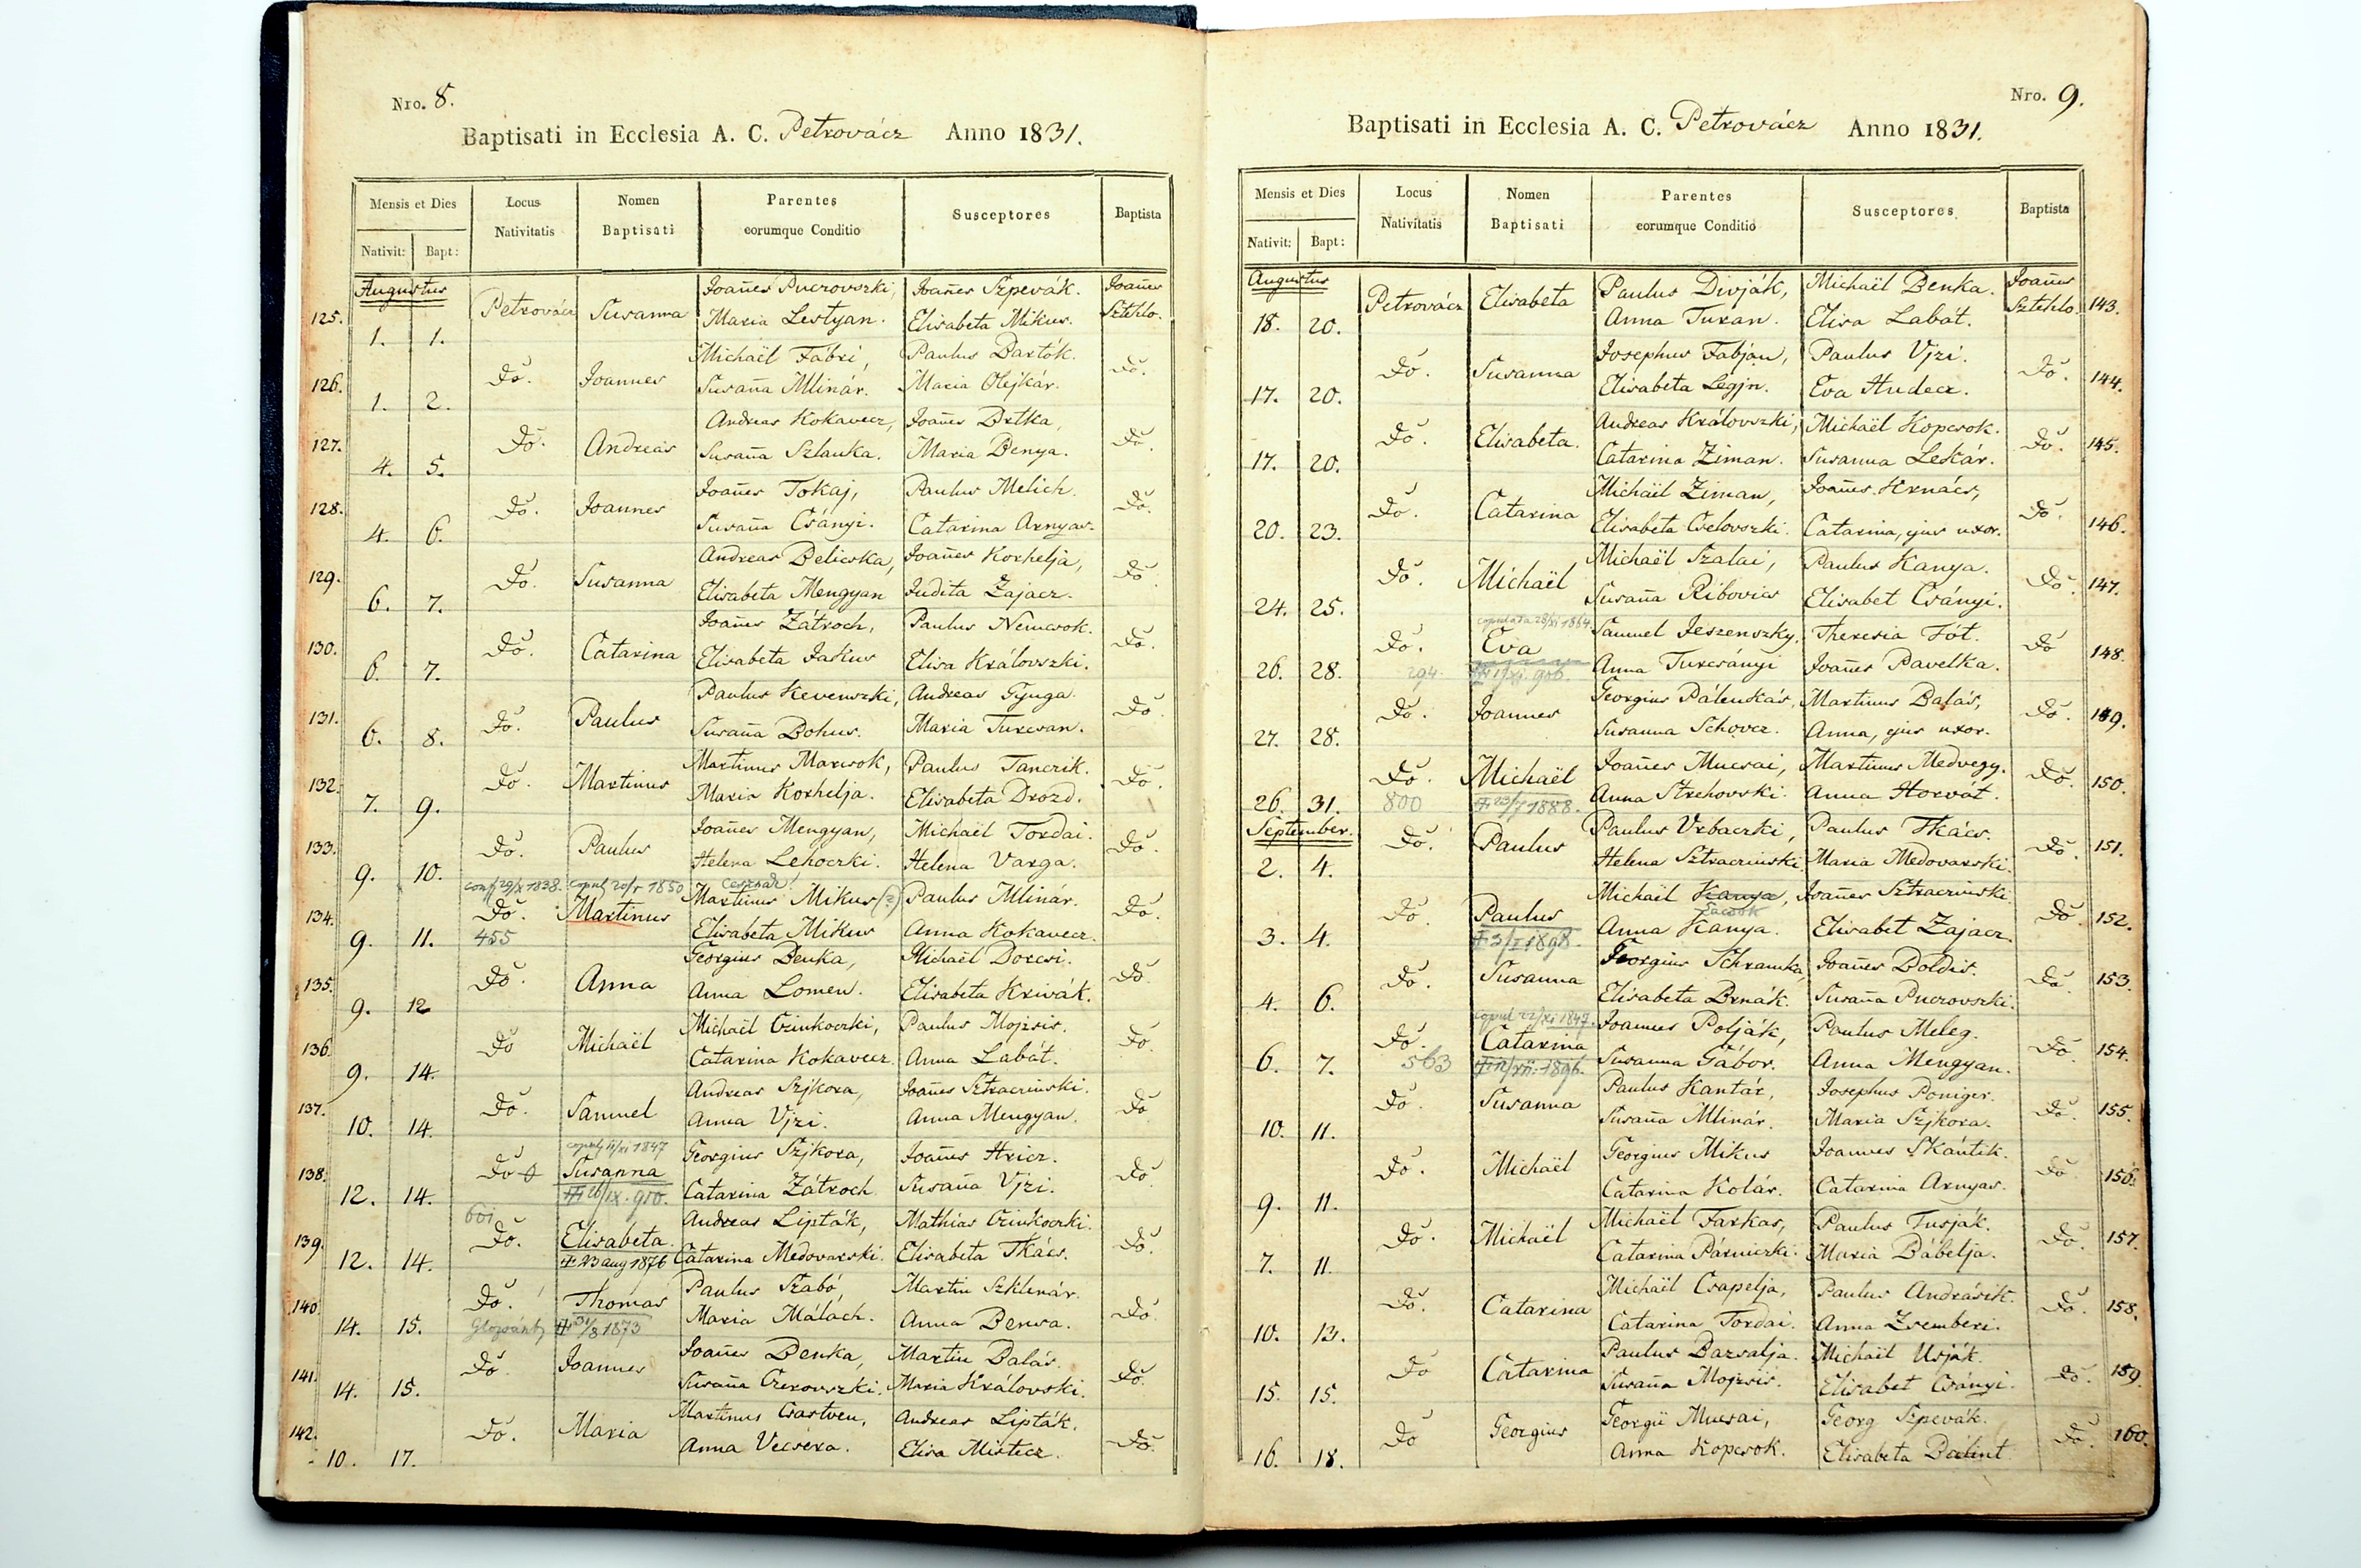 Nro. 8.
Baptisati in Ecclesia A. C. Petrovácz Anno 1831.
Mensis et Dies Locus Nativitatis Nomen Baptisati Parentes eorumque Conditio Susceptores Baptista
Nativit: Bapt:
Augustus
125. 1. 1. Petrovácz Susanna Joañes Puczovszki, Joañes Szpevák. Joañes
Maria Lestyan. Elisabeta Mikus. Sztehlo.
126. 1. 2. Do. Joannes Michaël Fábri, Paulus Bartók. Do.
Susaña Mlinár. Maria Olejkár.
127. 4. 5. Do. Andreas Andreas Kokavecz, Joañes Brtka, Do.
Susaña Szlauka. Maria Benya.
128. 4. 6. Do. Joannes Joañes Tokaj, Paulus Melich. Do.
Susaña Csányi. Catarina Arnyas.
129. 6. 7. Do. Susanna Andreas Belicska, Joañes Korhelja, Do.
Elisabeta Mengyan Judita Zajacz.
130. 6. 7. Do. Catarina Joañes Zátroch, Paulus Nemcsok. Do.
Elisabeta Jaskus Elisa Královszki.
131. 6. 8. Do. Paulus Paulus Kevenszki, Andreas Gyuga. Do.
Susaña Bohus. Maria Turcsan.
132. 7. 9. Do. Martinus Martinus Marcsok, Paulus Tanczik. Do.
Maria Korhelja. Elisabeta Drozd.
133. 9. 10. Do. Paulus Joañes Mengyan, Michaël Tordai. Do.
Helena Lehoczki. Helena Varga.
conf 29/X 1838. copul 20/V 1850
134. 9. 11. Do. Martinus Martinus Mikus (?) Paulus Mlinár. Do.
455 Elisabeta Mikus Anna Kokavecz.
135. 9. 12 Do. Anna Georgius Benka, Michaël Dorcsi. Do
Anna Lomen. Elisabeta Krivák.
136. 9. 14. Do Michaël Michaël Czinkoczki, Paulus Mojzsis. Do.
Catarina Kokavecz Anna Labát.
137. 10. 14. Do. Samuel Andreas Szjkora, Joañes Sztraczinski. Do
Anna Vjzi. Anna Mengyan.
copul 11/XI 1847
138. 12. 14. Do Susanna Georgius Szjkora, Joañes Hricz. Do.
26/IX. 910. Catarina Zátroch Susaña Vjzi.
601
139. 12. 14. Do. Elisabeta Andreas Lipták, Mathias Czinkoczki. Do.
23 aug 1876 Catarina Medovarski. Elisabeta Tkács.
140. 14. 15. Do. Thomas Paulus Szabó, Martin Szklenár. Do
31/8 1873 Maria Málach. Anna Bensa.
141. 14. 15. Do. Joannes Joañes Benka, Martin Balás. Do.
Susaña Czerovszki. Maria Královski.
142. 10. 17. Do. Maria Martinus Csastven, Andreas Lipták. Do.
Anna Vecsera. Elisa Misticz.
Nro. 9.
Baptisati in Ecclesia A. C. Petrovácz Anno 1831.
Mensis et Dies Locus Nativitatis Nomen Baptisati Parentes eorumque Conditio Susceptores Baptista
Nativit: Bapt:
Augustus
18. 20. Petrovácz Elisabeta Paulus Divják, Michaël Benka. Joañes 143.
Anna Turan. Elisa Labát. Sztehlo.
17. 20. Do. Susanna Josephus Fabjan, Paulus Vjzi. Do. 144.
Elisabeta Legjn. Eva Hudecz.
17. 20. Do. Elisabeta. Andreas Královszki, Michaël Kopcsok. Do. 145.
Catarina Ziman. Susanna Leskár.
20. 23. Do. Catarina Michaël Ziman, Joañes Hrnács, Do. 146.
Elisabeta Cselovszki. Catarina, ejus uxor.
24. 25. Do. Michaël Michaël Szalai, Paulus Kanya. Do. 147.
Susaña Ribovics Elisabet Csányi.
copulata 28/XI 1864.
26. 28. Do. Eva Samuel Jeszenszky. Theresia Tót. Do 148.
294 1/XI. 906. Anna Turcsányi Joañes Pavelka.
27. 28. Do. Joannes Georgius Pálenkás, Martinus Balás, Do. 149.
Susanna Schovcz. Anna, ejus uxor.
26. 31. Do. Michaël Joañes Mucsai, Martinus Medvegy. Do. 150.
800 23/I 1888. Anna Strehovski. Anna Horvat.
September.
2. 4. Do. Paulus Paulus Vrbaczki, Paulus Tkács. Do. 151.
Helena Sztraczinski. Maria Medovarski.
3. 4. Do. Paulus Michaël Kanya, Joañes Sztraczinski Do 152.
3/I 1898. Anna Kanya. Elisabet Zajacz.
4. 6. Do. Susanna Georgius Schramka, Joañes Boldis. Do. 153.
Elisabeta Brnák. Susaña Puczovszki.
copul 22/XI 1847.
6. 7. Do. Catarina Joannes Polják, Paulus Meleg. Do. 154.
563 12/XII. 1896. Susanna Gábor. Anna Mengyan.
10. 11. Do. Susanna Paulus Kantár, Josephus Poniger. Do. 155.
Susaña Mlinár. Maria Szjkora.
9. 11. Do. Michaël Georgius Mikus Joannes Skántik. Do. 156.
Catarina Kolár. Catarina Arnyas.
7. 11. Do. Michaël Michaël Farkas, Paulus Tusják. Do. 157.
Catarina Párniczki. Maria Bábelja.
10. 12. Do. Catarina Michaël Csapelja, Paulus Andrásik. Do. 158.
Catarina Tordai. Anna Zsemberi.
15. 15. Do Catarina Paulus Barsalja. Michaël Usják. Do. 159.
Susaña Mojzsis. Elisabet Csányi.
16. 18. Do Georgius Georgii Mucsai, Georg Szpevák. Do. 160.
Anna Kopcsok. Elisabeta Bálint